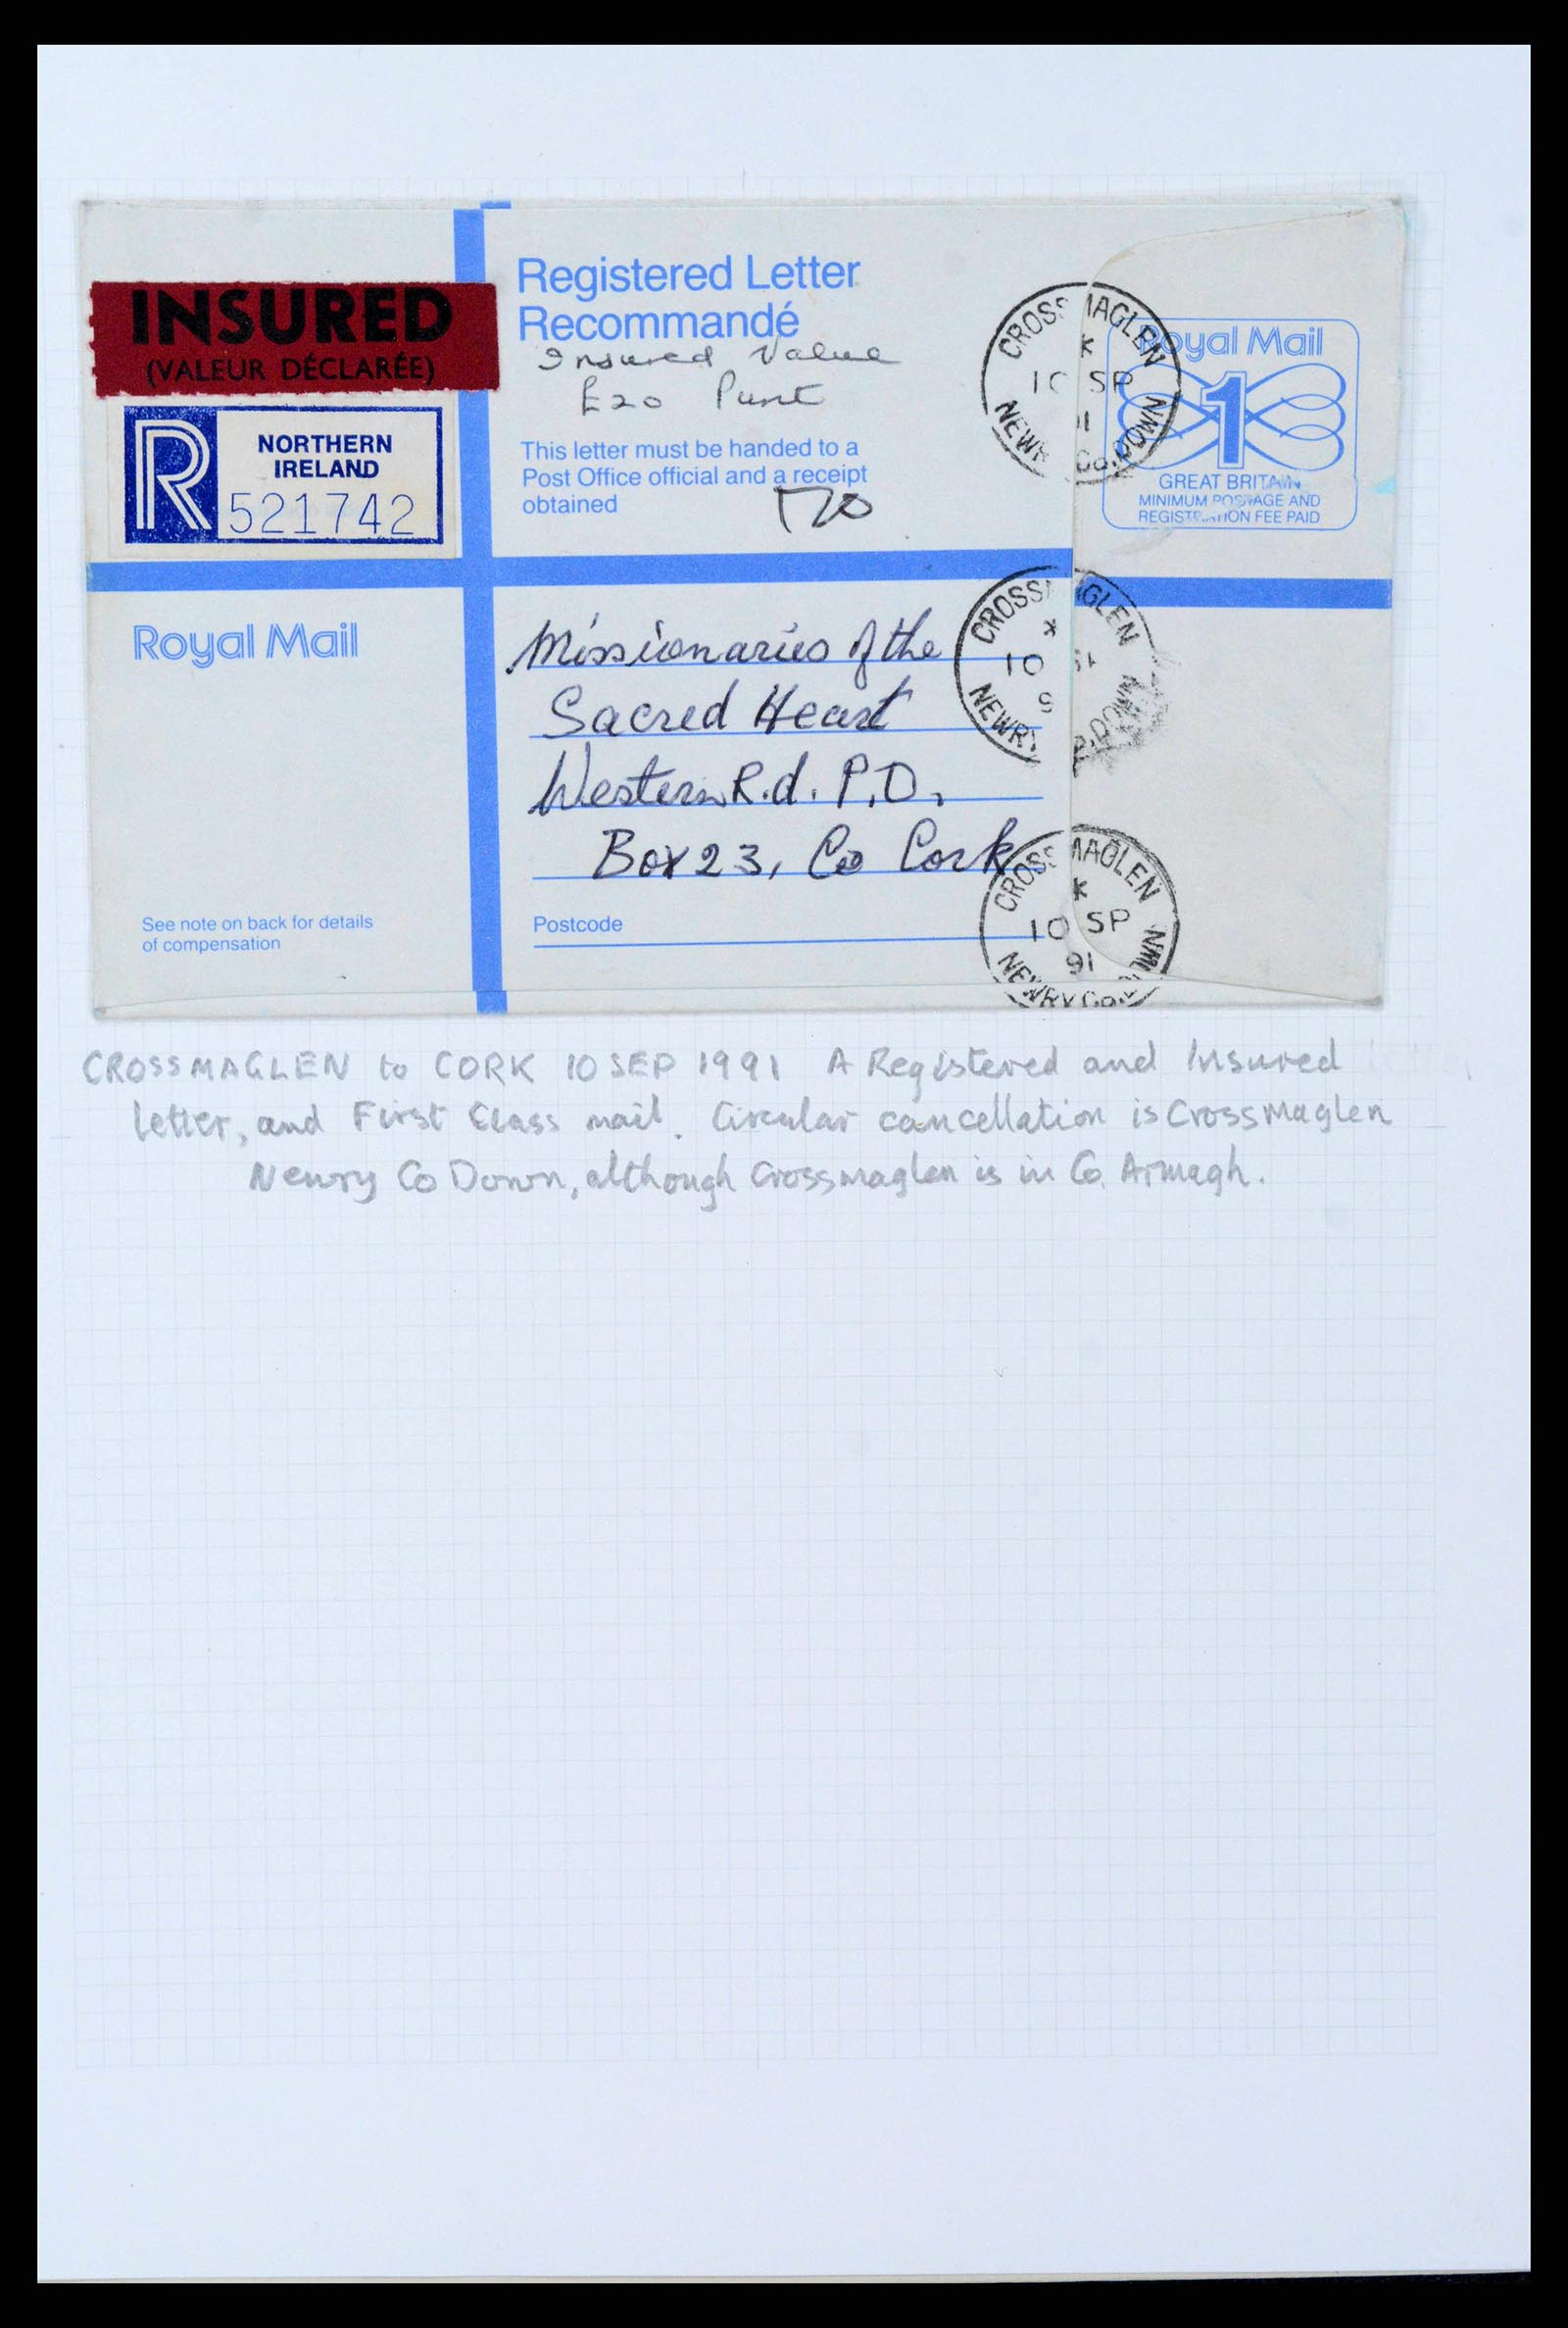 INSURED
(VALEUR DÉCLARÉE)
R
NORTHERN
IRELAND
521742
Registered Letter
Recommandé
Insured Value
£20 Punt
This letter must be handed to a
Post Office official and a receipt
obtained
Royal Mail
1
GREAT BRITAIN
MINIMUM POSTAGE AND
REGISTRATION FEE PAID
CROSS MAGLEN
*
10 SP
91
NEWRY Co. DOWN
Royal Mail
Missionaries of the
Sacred Heart
Western R.d. P.O.
Box 23, Co Cork
Postcode
CROSS AGLEN
*
10
9
NEWRY DOWN
CROSS MAGLEN
*
10 SP
91
NEWRY Co.
See note on back for details
of compensation
CROSSMAGLEN to CORK 10 SEP 1991 A Registered and Insured
letter, and First Class mail. Circular cancellation is Crossmaglen
Newry Co Down, although Crossmaglen is in Co. Armagh.